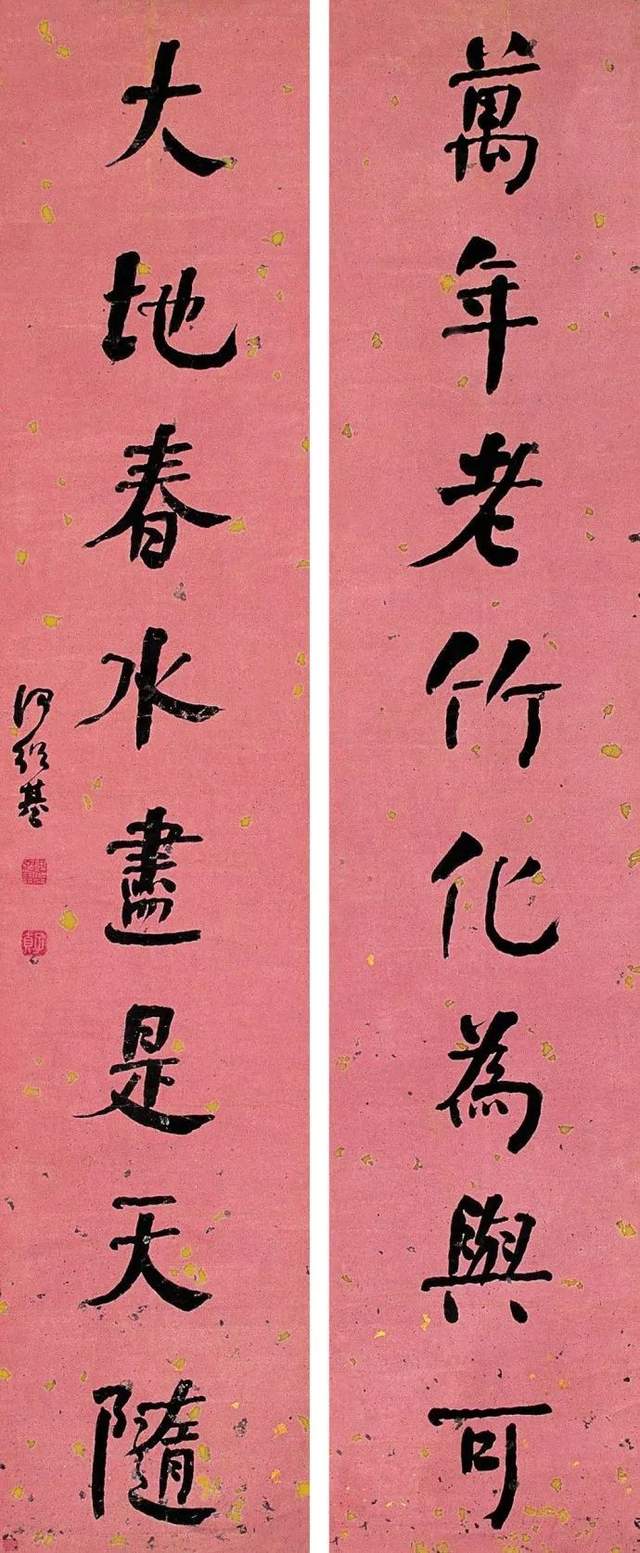 萬年老竹化為與可
大地春水盡是天隨
何紹基
子貞